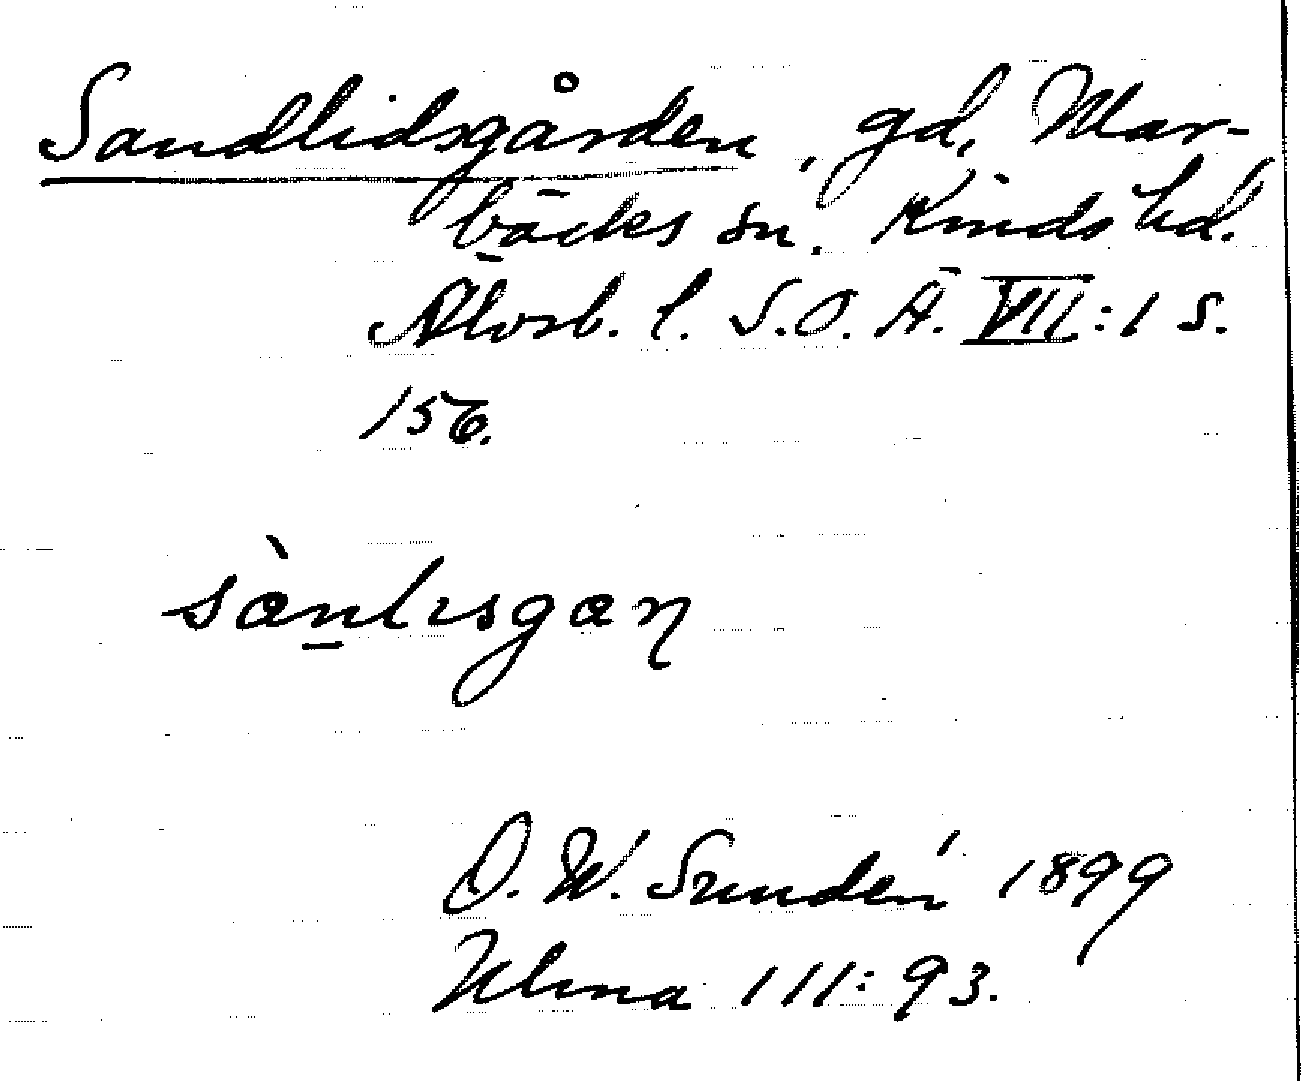 Sandlidsgården, gd, Mar-
bäcks sn. Kinds hd.
Älvsb. l. S.O.Ä. VII:1 s.
156.
sànlısgaɳ
D. W. Sundén 1899
Ulma 111:93.